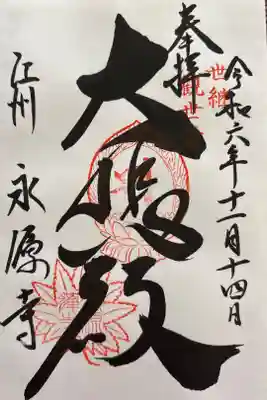 令和六年十一月十四日
奉拝
世継
観世
大悲殿
江州 永源寺